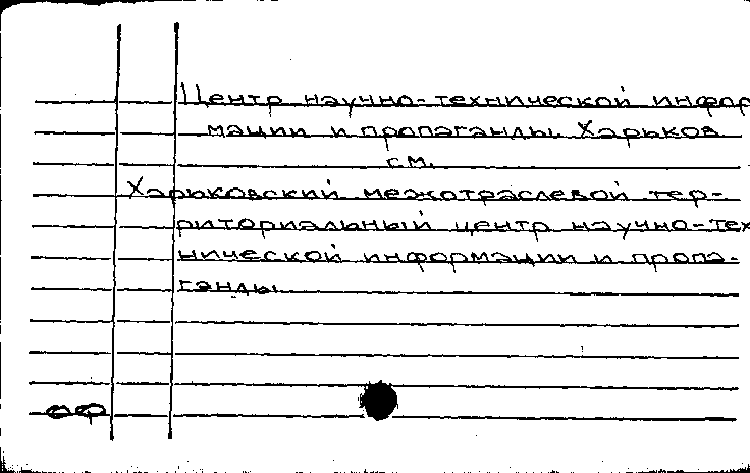 Центр научно-технической инфор
мации и пропаганды. Харьков
см.
Харьковский межотраслевой тер-
риториальный центр научно-тех
нической информации и пропа-
ганды.
оф